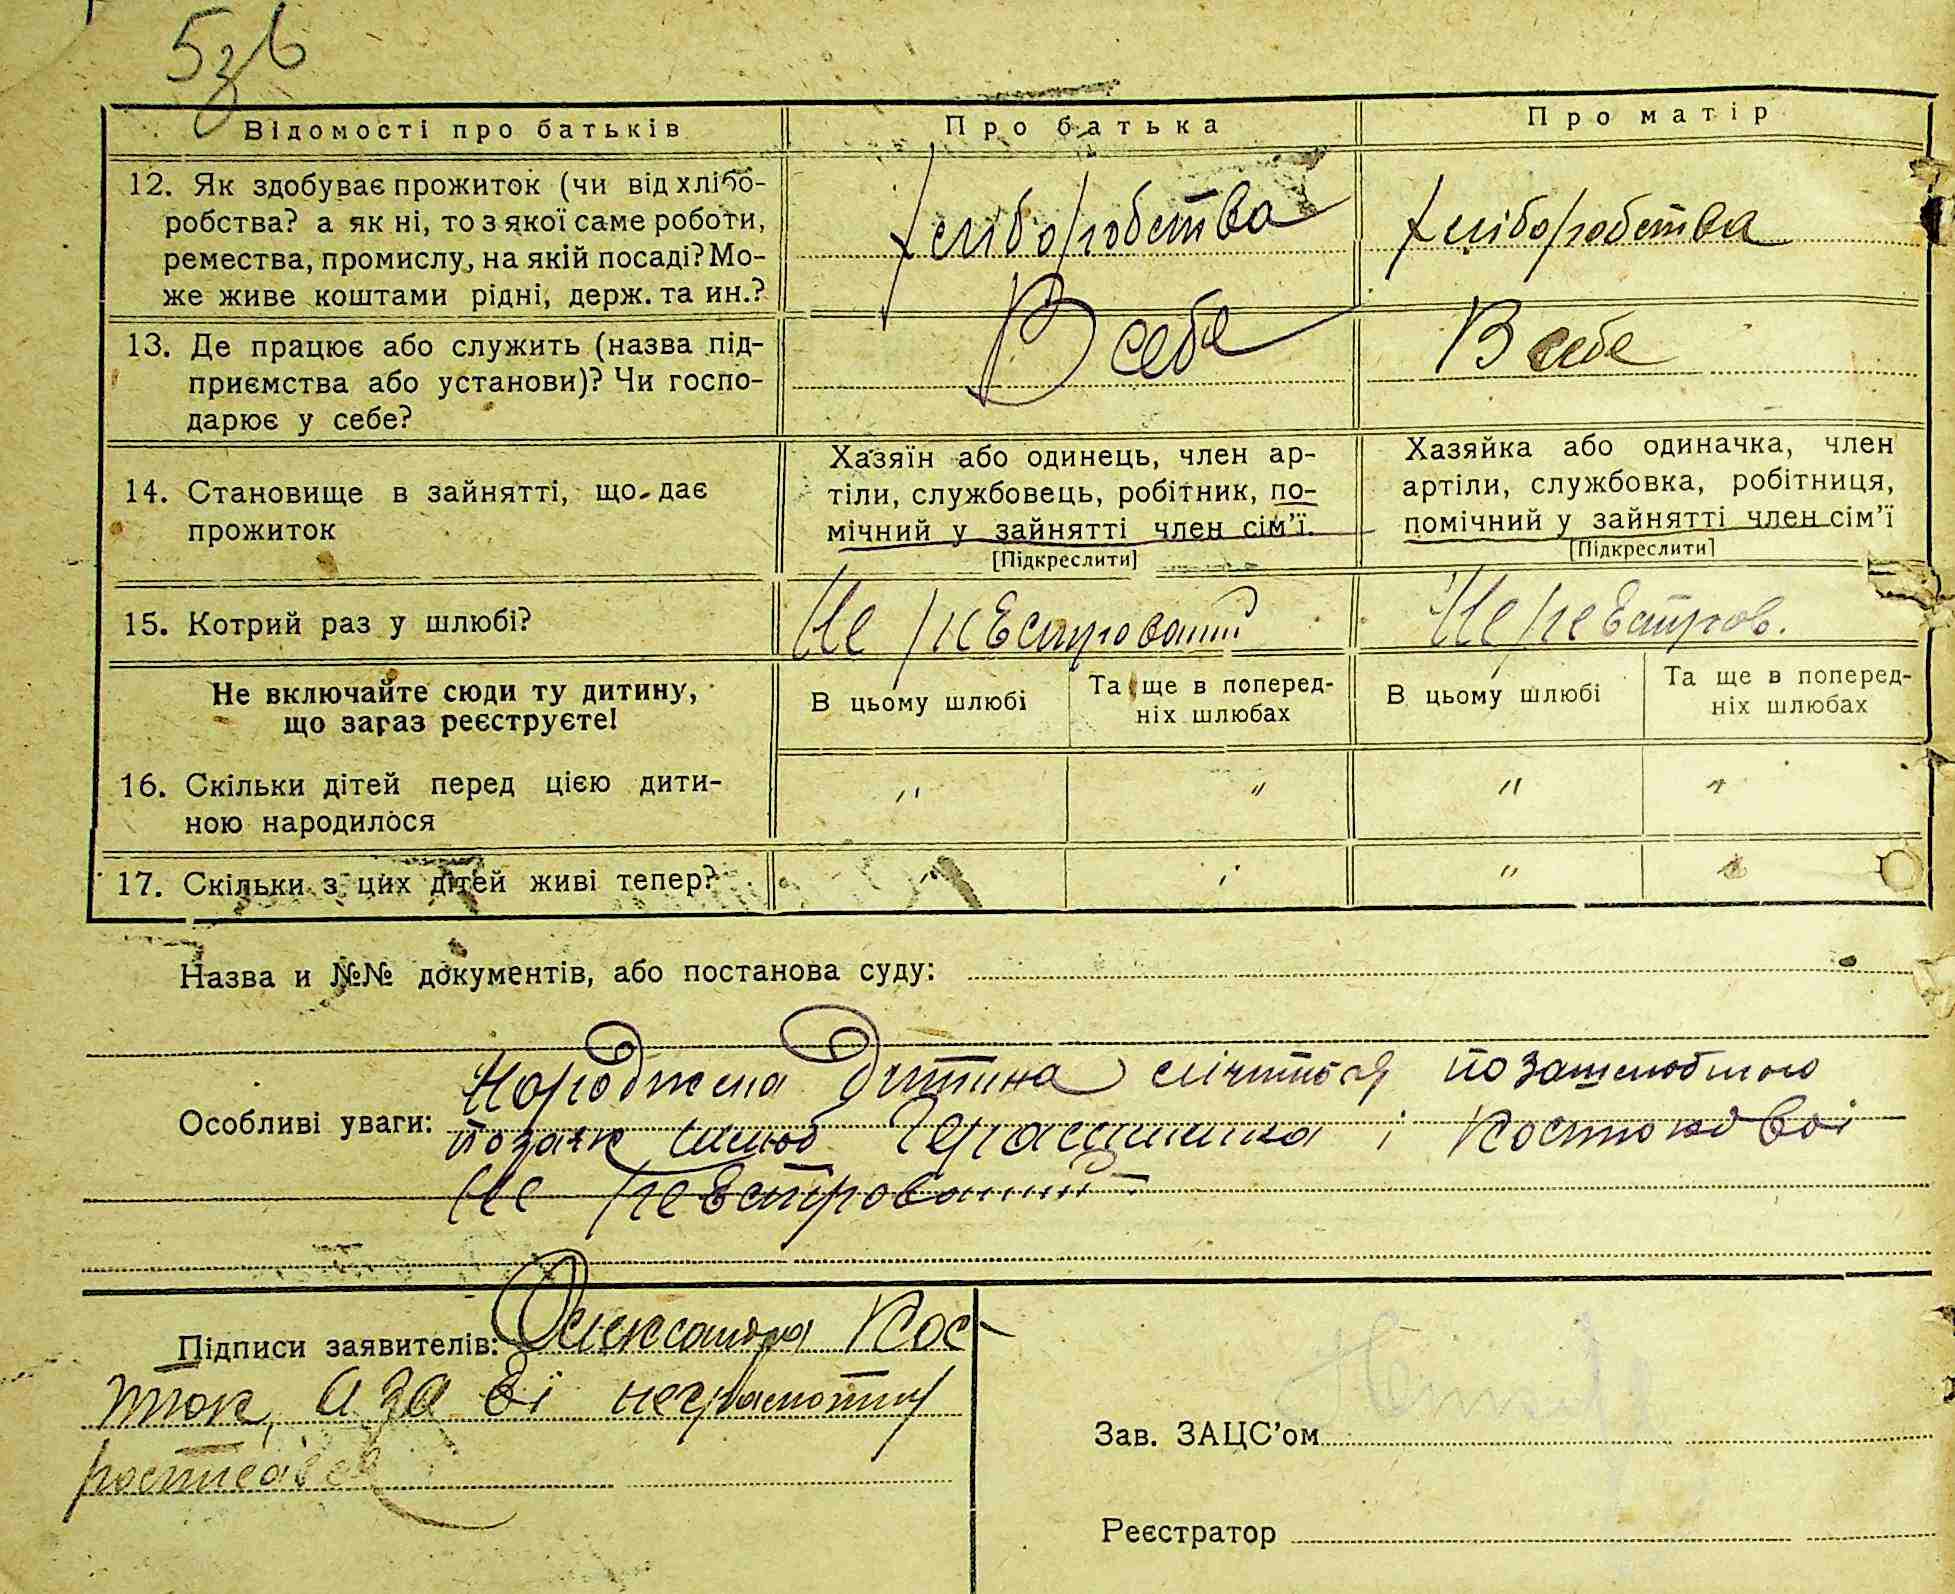 5зв
Відомості про батьків
Про батька
Про матір
12. Як здобуває прожиток (чи від хлібо-
робства? а як ні, то з якої саме роботи,
ремества, промислу, на якій посаді? Мо-
же живе коштами рідні, держ. та ин.?
хліборобства
хліборобства
13. Де працює або служить (назва під-
приємства або установи)? Чи госпо-
дарює у себе?
В себе
В себе
14. Становище в зайнятті, що дає
прожиток
Хазяїн або одинець, член ар-
тіли, службовець, робітник, по-
мічний у зайнятті член сім’ї.
[Підкреслити]
Хазяйка або одиначка, член
артіли, службовка, робітниця,
помічний у зайнятті член сім’ї
[Підкреслити]
15. Котрий раз у шлюбі?
Не реєстрований
Не реєстров.
Не включайте сюди ту дитину,
що зараз реєструєте!
В цьому шлюбі
Та ще в поперед-
ніх шлюбах
В цьому шлюбі
Та ще в поперед-
ніх шлюбах
16. Скільки дітей перед цією дити-
ною народилося
" " " "
17. Скільки з цих дітей живі тепер?
" " " "
Назва и №№ документів, або постанова суду:
Особливі уваги:
Народжена дитина лічиться позашлюбною
позаяк шлюб Геращинка і Костюкової
не реєстрований
Підписи заявителів: Олександра Кос
тюк, а за її неграмотну
Зав. ЗАЦС’ом
Реєстратор